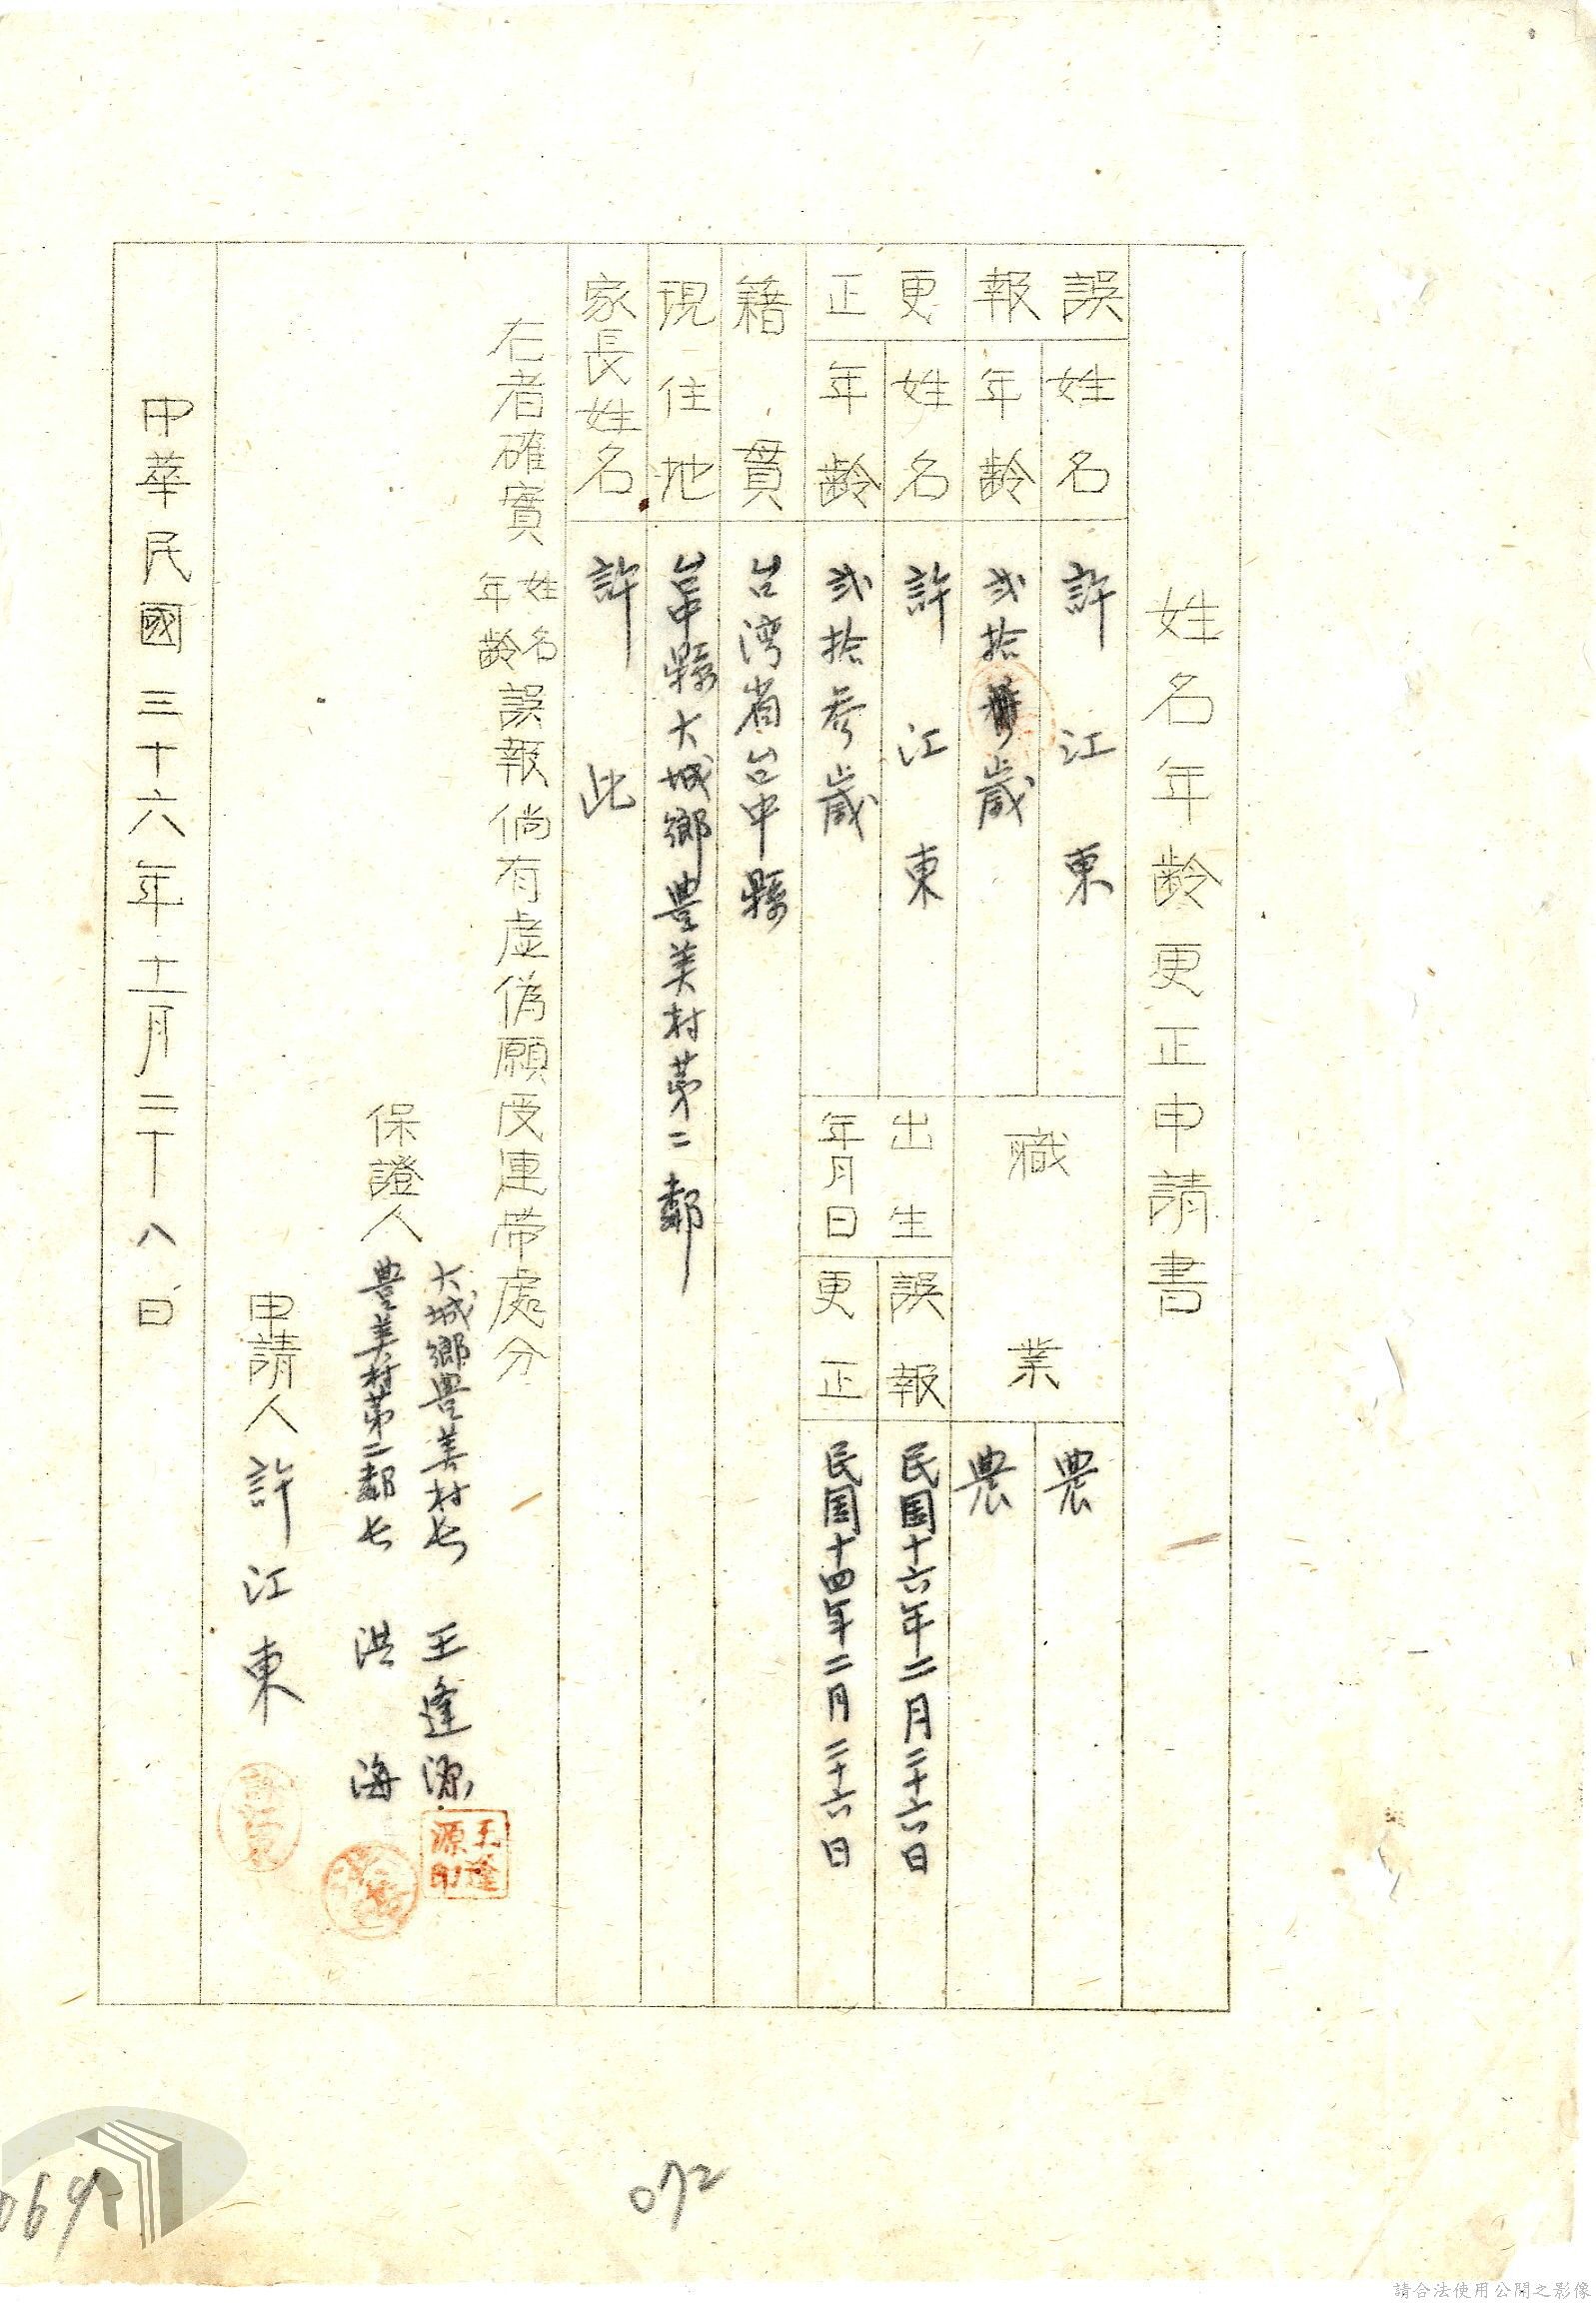 姓名年齡更正申請書
誤報
姓名
許江東
職業
農
年齡
弐拾歲
農
更正
姓名
許江東
出生年月日
誤報
民国十六年二月二十六日
年齡
弐拾参歲
更正
民国十四年二月二十六日
籍貫
台湾省台中縣
現住地
台中縣大城鄉豊美村第二鄰
家長姓名
許此
右者確實姓名年齡誤報倘有虛偽願受連帶處分
保證人
大城鄉豊美村长 王逢源
豊美村第二鄰长 洪海
申請人 許江東
王逢源印
中華民國三十六年十二月二十八日
072
069
請合法使用公開之影像